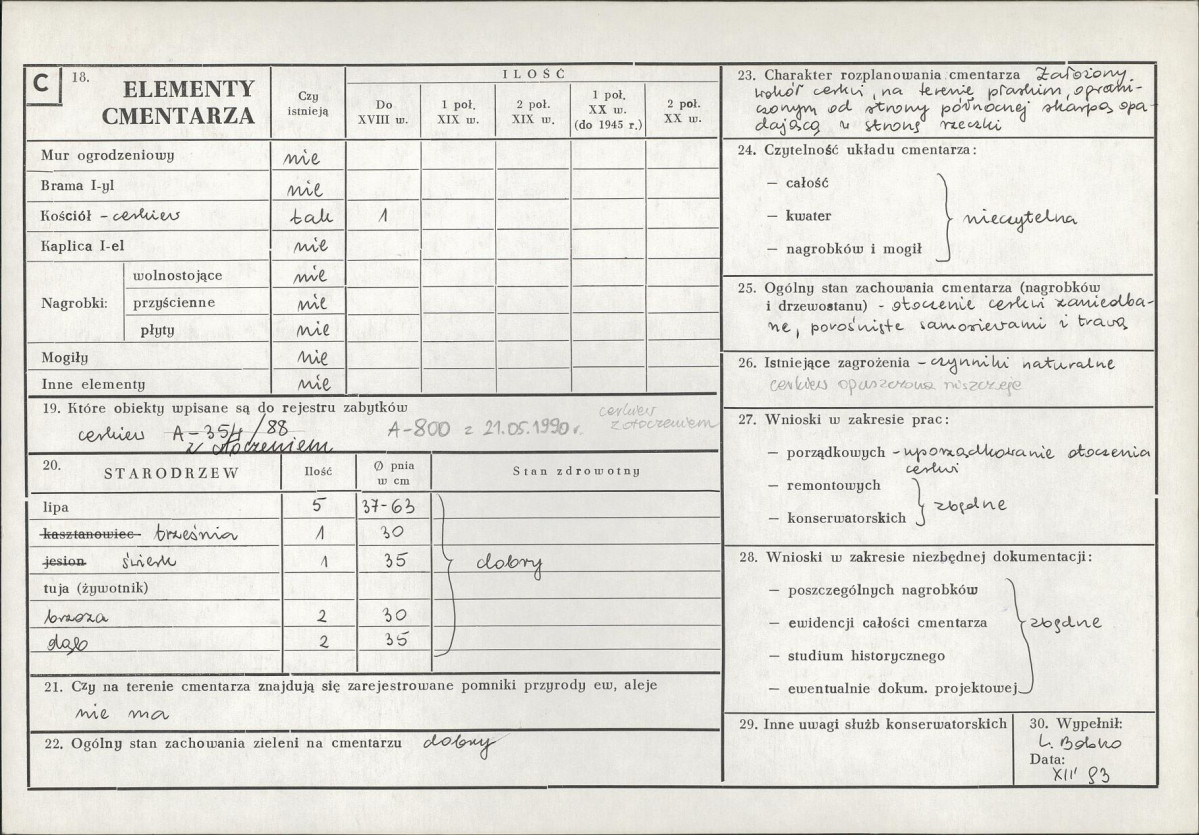 C
18.
ELEMENTY
CMENTARZA
Czy
istnieją
ILOŚĆ
Do
XVIII w.
1 poł.
XIX w.
2 poł.
XIX w.
1 poł.
XX w.
(do 1945 r.)
2 poł.
XX w.
Mur ogrodzeniowy nie
Brama I-yl nie
Kościół - cerkiew tak 1
Kaplica I-el nie
Nagrobki:
wolnostojące nie
przyścienne nie
płyty nie
Mogiły nie
Inne elementy nie
19. Które obiekty wpisane są do rejestru zabytków
cerkiew A-354/88
z otoczeniem
A-800 z 21.05.1990 r.
cerkiew
z otoczeniem
20.
STARODRZEW
Ilość
Ø pnia
w cm
Stan zdrowotny
lipa 5 37-63
kasztanowiec brześnia 1 30
jesion świerk 1 35
dobry
tuja (żywotnik)
brzoza 2 30
dąb 2 35
21. Czy na terenie cmentarza znajdują się zarejestrowane pomniki przyrody ew, aleje
nie ma
22. Ogólny stan zachowania zieleni na cmentarzu dobry
23. Charakter rozplanowania cmentarza Założony
wokół cerkwi, na terenie płaskim, ograni-
czonym od strony północnej skarpą opa-
dającą w stronę rzeczki
24. Czytelność układu cmentarza:
— całość
— kwater
— nagrobków i mogił
nieczytelna
25. Ogólny stan zachowania cmentarza (nagrobków
i drzewostanu) - otoczenie cerkwi zaniedba-
ne, porośnięte samosiewami i trawą
26. Istniejące zagrożenia - czynniki naturalne
cerkiew opuszczona niszczeje
27. Wnioski w zakresie prac:
— porządkowych - uporządkowanie otoczenia
cerkwi
— remontowych
— konserwatorskich
zbędne
28. Wnioski w zakresie niezbędnej dokumentacji:
— poszczególnych nagrobków
— ewidencji całości cmentarza
— studium historycznego
— ewentualnie dokum. projektowej
zbędne
29. Inne uwagi służb konserwatorskich
30. Wypełnił:
Data: